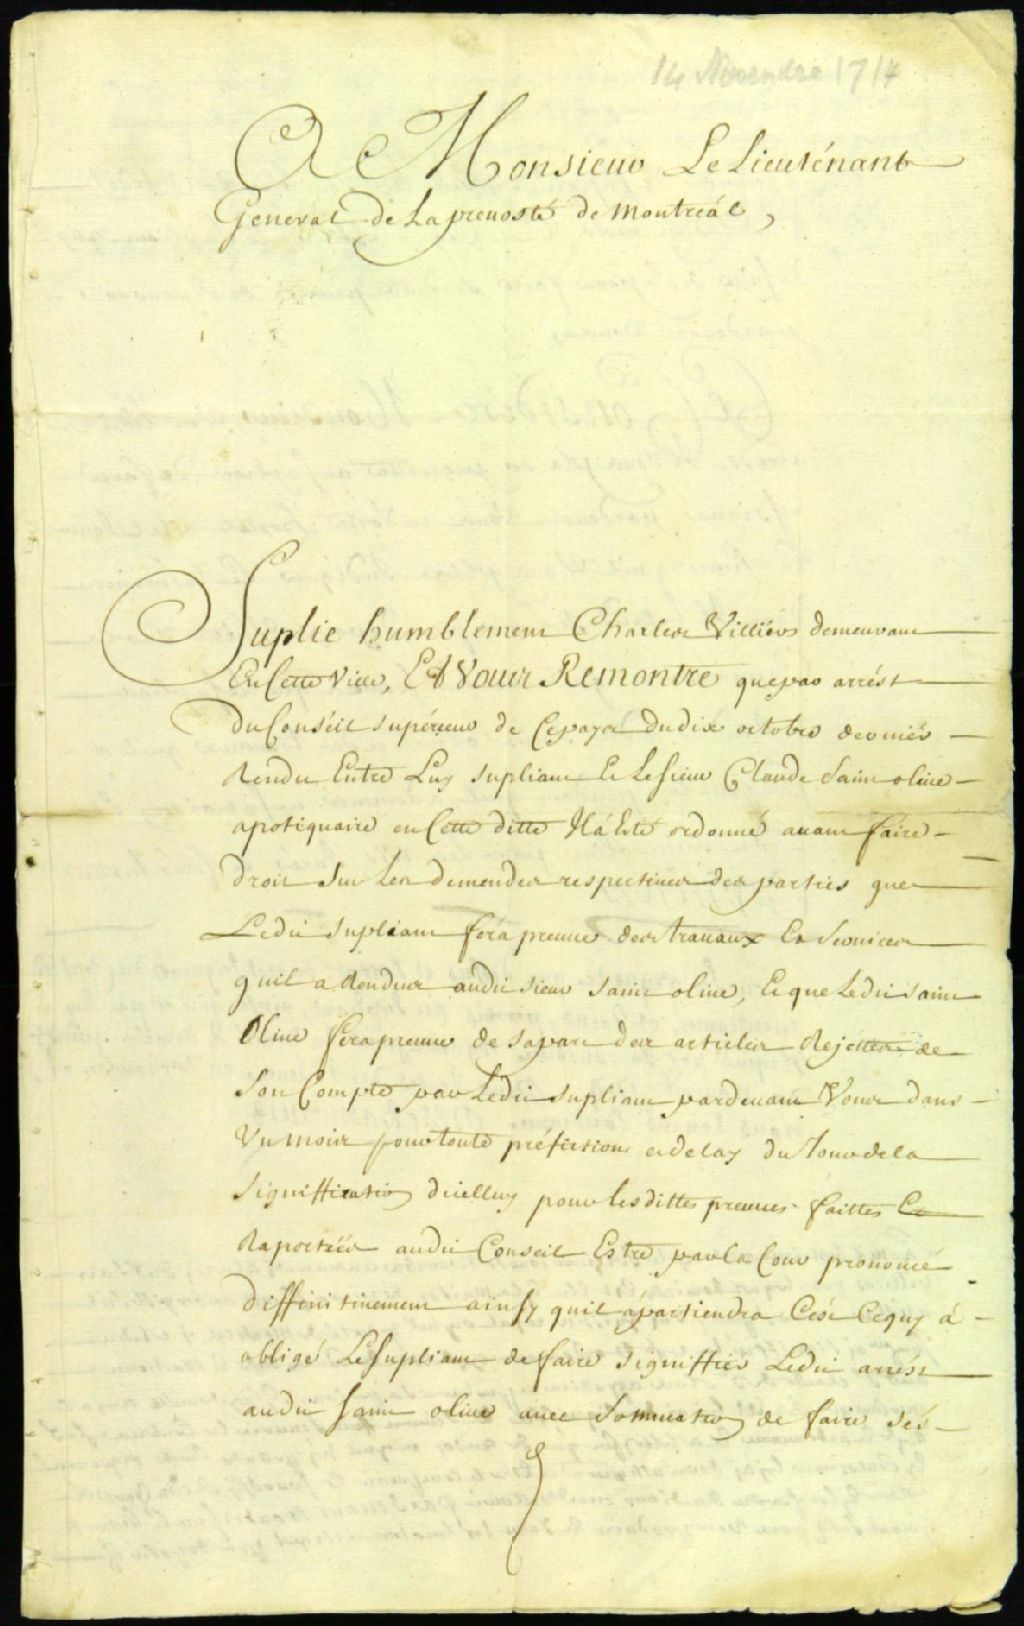 14 Novembre 1714
A Monsieur Le Lieuténant
General de La preuosté de Montreál,
Suplie humblement Charles Villiérs demeurant
En Cette Ville, Et Vous Remontre que par arrést
Du Conséil supérieur de Ce pays du dix octobre derniér
Rendu Entre Luy supliant Et Le sieur Claude Saint oliue
apotiquaire en Cette ditte Il á Esté ordonné auant faire
droit sur Les demandes respectiues des parties que
Ledit supliant fera preuue des trauaux Et Seruices
quil a Rendus audit sieur saint oliue, Et que Ledit saint
Oliue fera preuue de sa part des articles Rejettés de
son Compte par Ledit supliant pardeuant Vous dans
Vn mois pour toute préfiction et delay du Jour de la
signiffication d'icelluy pour les dittes preuues faittes Et
Raportéés audit Conseil Estre par la Cour prononcé
diffinitiuement ainsy quil ápartiendra Cést Cequy á
obligé Le supliant de faire signiffiér Ledit arrést
audit saint oliue auec sommation de faire sés